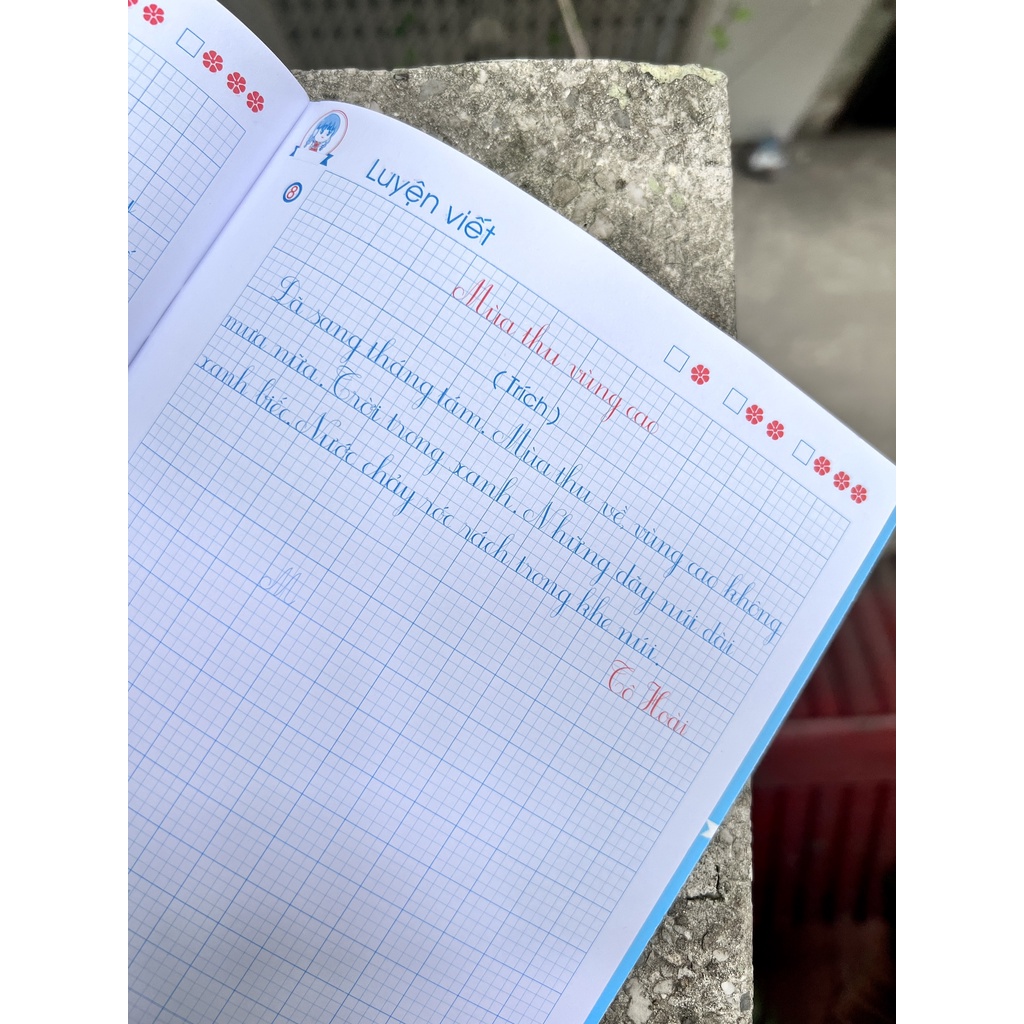 Luyện viết
8
Mùa thu vùng cao
(Trích)
Đã sang tháng tám. Mùa thu về, vùng cao không
mưa nữa. Trời trong xanh. Những dãy núi dài
xanh biếc. Nước chảy róc rách trong khe núi.
Tô Hoài
M